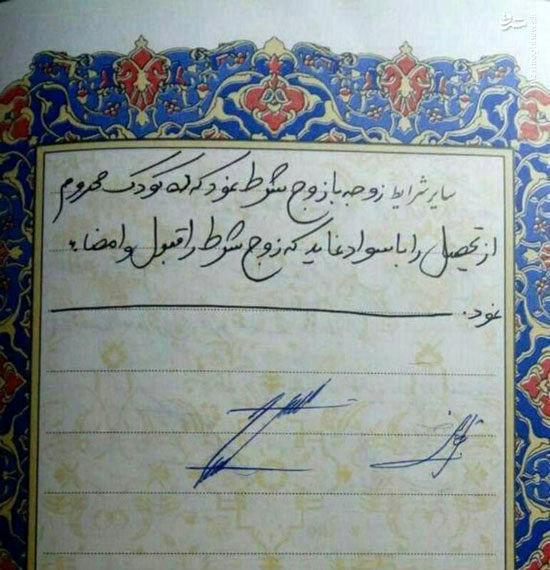 سایر شرایط زوجه با زوج شرط نمود که ده کودک محروم
از تحصیل را با سواد نماید که زوج شرط را قبول و امضاء
نمود.